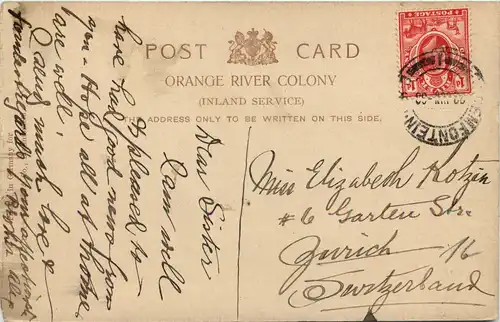 POST CARD
ORANGE RIVER COLONY
(INLAND SERVICE)
THE ADDRESS ONLY TO BE WRITTEN ON THIS SIDE.
POSTAGE
Dear Sister
I am well
& pleased to
have had good news from
you - Hope all at home
are well.
much love &
from your affectionate
Miss Elizabeth Kotzin
#6 Garten Str.
Zurich 16
Switzerland